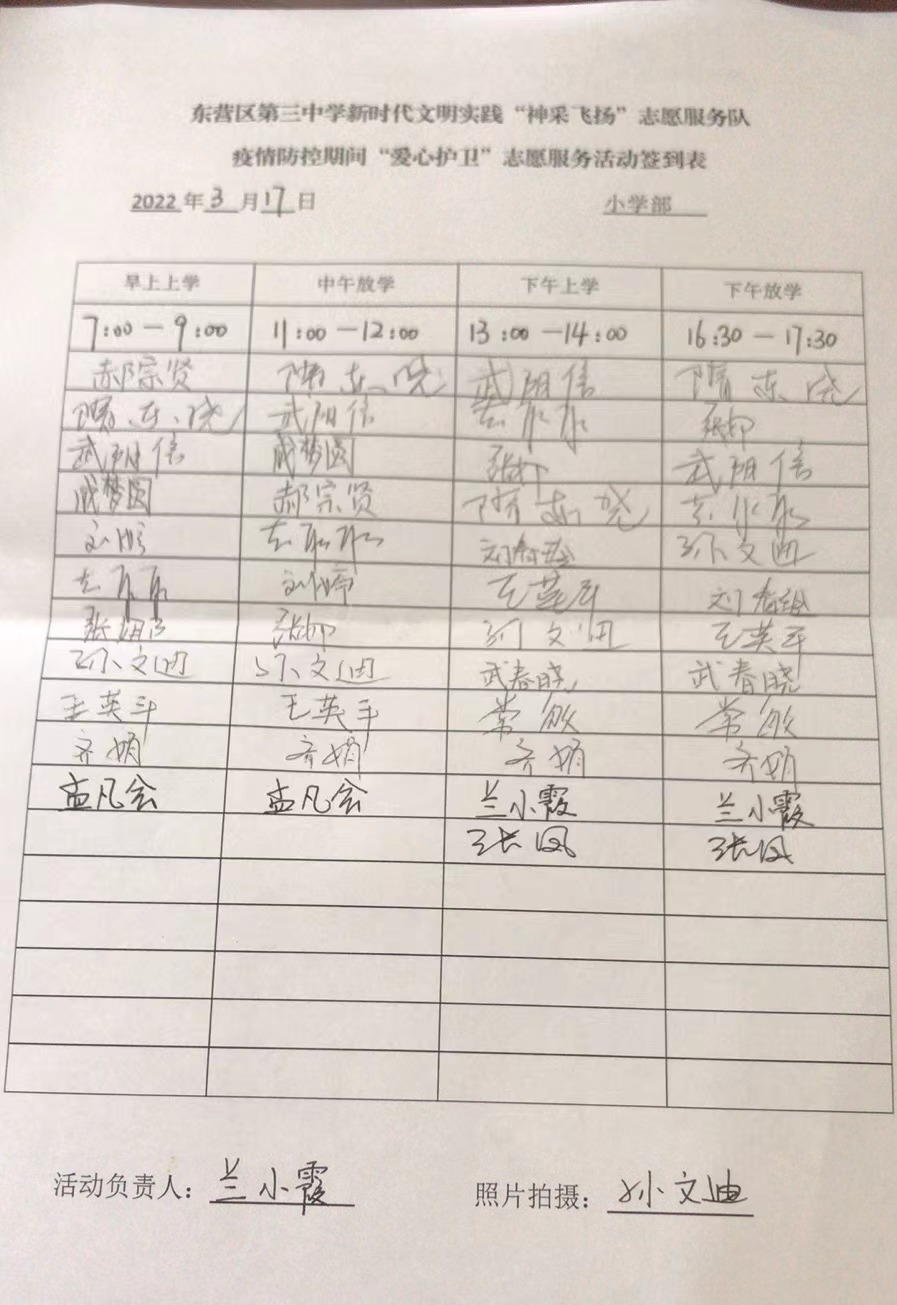 东营区第三中学新时代文明实践“神采飞扬”志愿服务队
疫情防控期间“爱心护卫”志愿服务活动签到表
2022 年 3 月 17 日 小学部
早上上学 中午放学 下午上学 下午放学
7:00 — 9:00 11:00 — 12:00 13:00 — 14:00 16:30 — 17:30
郝宗贤 隋东晓 武阳信 隋东晓
隋东晓 武阳信
武阳信 成梦圆 武阳信
成梦圆 郝宗贤 隋东晓
孙文迪
刘婷 王英军 刘春组
孙文迪 王英军
孙文迪 孙文迪 武春晓 武春晓
王英军 王英军 常欣 常欣
齐娟 齐娟 齐娟 齐娟
孟凡会 孟凡会 兰小霞 兰小霞
张凤 张凤
活动负责人：兰小霞 照片拍摄：孙文迪